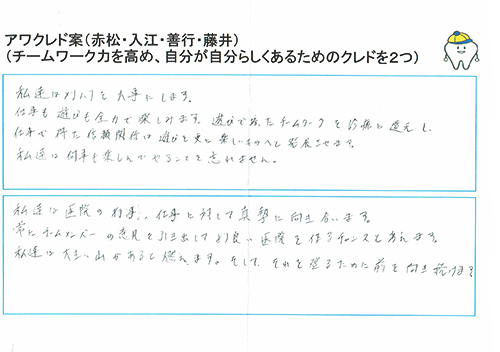 アワクレド案(赤松・入江・善行・藤井)
(チームワーク力を高め、自分が自分らしくあるためのクレドを2つ)
私達はメリハリを大事にします。
仕事も遊びも全力で楽しみます。遊びで培ったチームワークを診療に還元し、
仕事で得た信頼関係は遊びを更に楽しいものへと発展させます。
私達は何事も楽しんでやることを忘れません。
私達は医院の物事、仕事に対して真摯に向き合います。
常にチームメンバーの意見を引き出してより良い医院を作るチャンスと考えます。
私達は大きい山があると燃えます。そして、それを登るために前を向き続けます